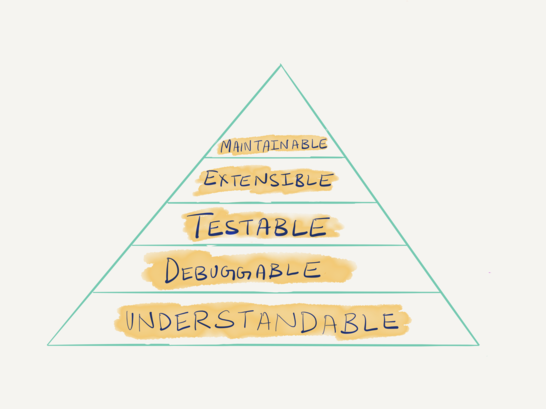 MAINTAINABLE
EXTENSIBLE
TESTABLE
DEBUGGABLE
UNDERSTANDABLE